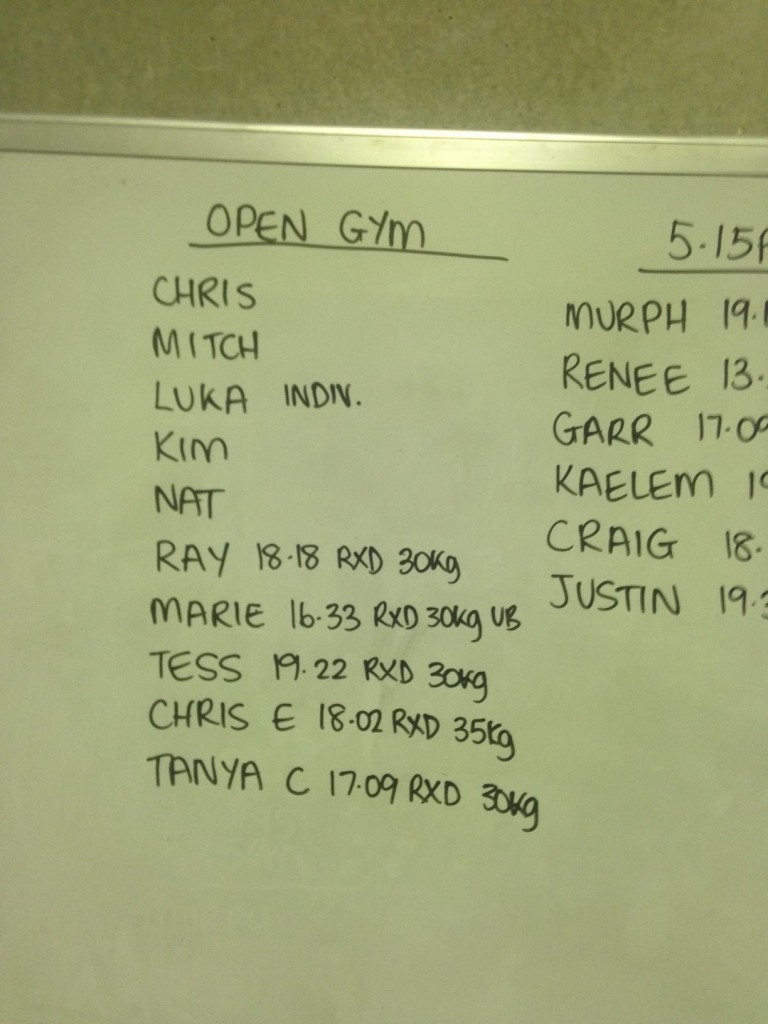 OPEN GYM
CHRIS
MITCH
LUKA INDIV.
KIM
NAT
RAY 18.18 RXD 30Kg
MARIE 16.33 RXD 30Kg UB
TESS 19.22 RXD 30Kg
CHRIS E 18.02 RXD 35Kg
TANYA C 17.09 RXD 30Kg
5.15
MURPH 19.
RENEE 13.
GARR 17.09
KAELEM
CRAIG 18.
JUSTIN 19.